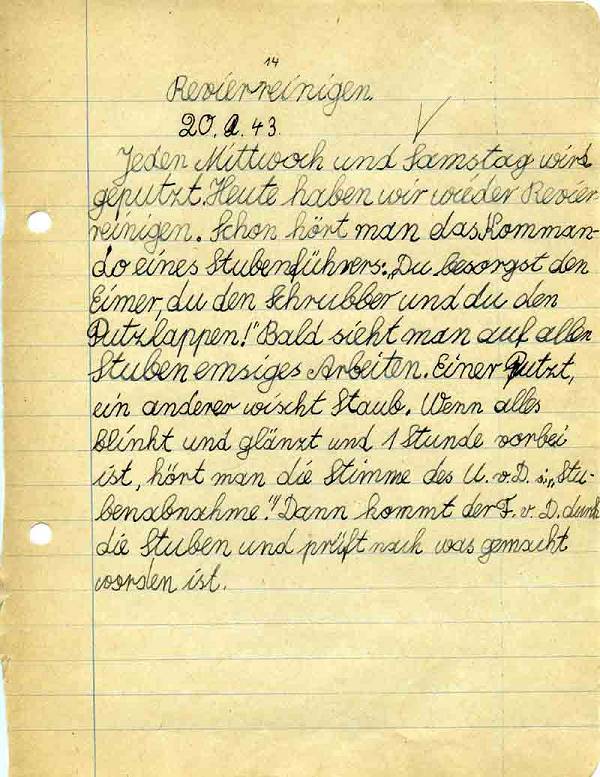 14
Revierreinigen.
20. 2. 43.
Jeden Mittwoch und Samstag wird
geputzt. Heute haben wir wieder Revier
reinigen. Schon hört man das Komman-
do eines Stubenführers: „Du besorgst den
Eimer, du den Schrubber und du den
Putzlappen!" Bald sieht man auf allen
Stuben emsiges Arbeiten. Einer Putzt,
ein anderer wischt Staub. Wenn alles
blinkt und glänzt und 1 Stunde vorbei
ist, hört man die Stimme des U. v. D.: „Stu-
benabnahme!" Dann kommt der F. v. D. durch
die Stuben und prüft nach was gemacht
worden ist.